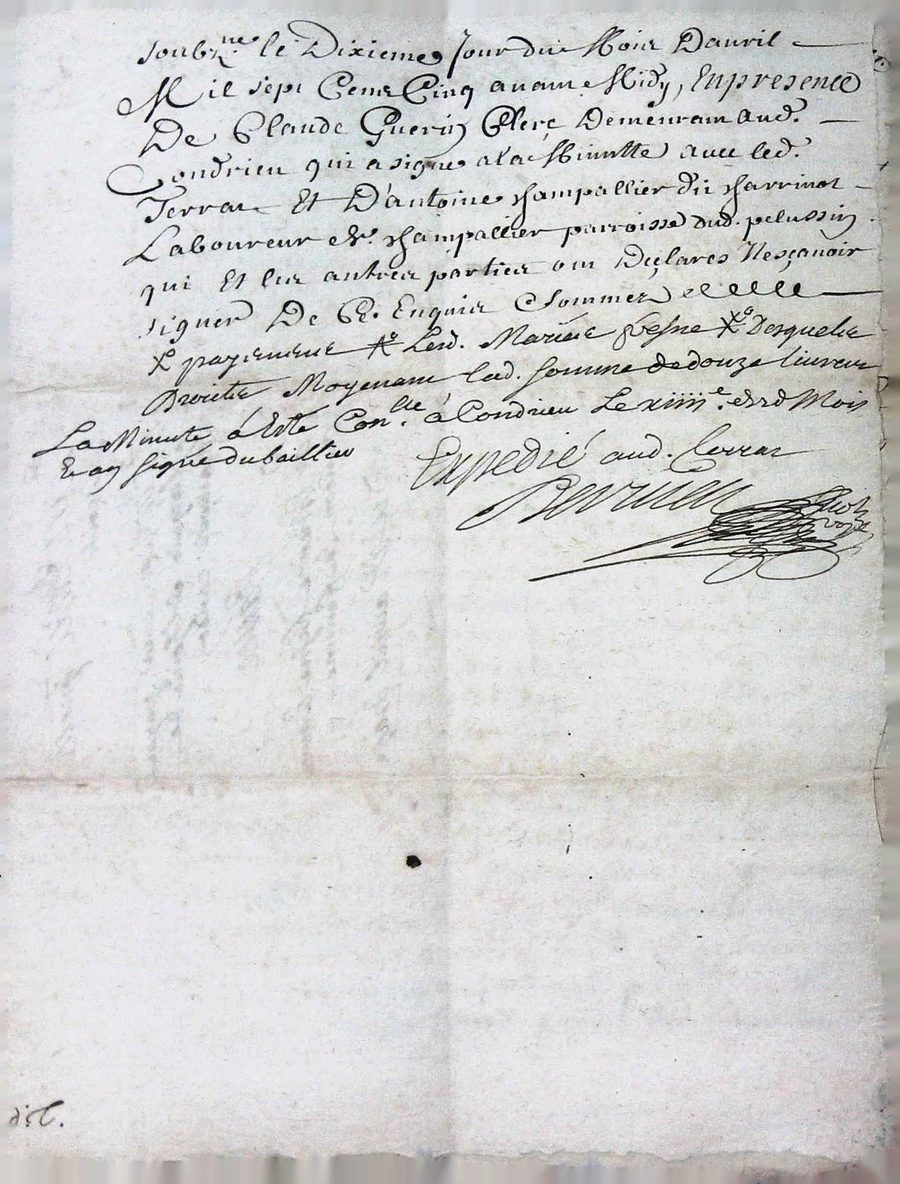 soubz.ne le Dixieme Jour du Mois Dauril
Mil sept Cens Cinq auant Midy, En presence
De Claude Guerin Clerc Demeurant aud.
Condrieu qui a signe a la Minutte auec led.
Terrat Et D'antoine Champallier dit Charrinot
Laboureur de Champallier parroisse dud. pelussin
qui Et les autres parties ont Declares Nesçauoir
signer De Ce Enquis Sommes
payement Lesd. Mariés fresne Desquels
Droits Moyenant lad. somme de douze liures
La Minute à Esté Con.llé à Condrieu Le xiiii.e desd Mois
Et an signé dubaillier
Expedié aud. Terrat